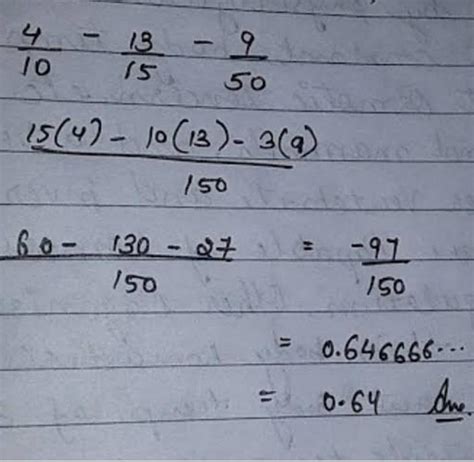 4/10 - 13/15 - 9/50
15(4) - 10(13) - 3(9) / 150
60 - 130 - 27 / 150 = -97/150
= 0.646666...
= 0.64 Ans.